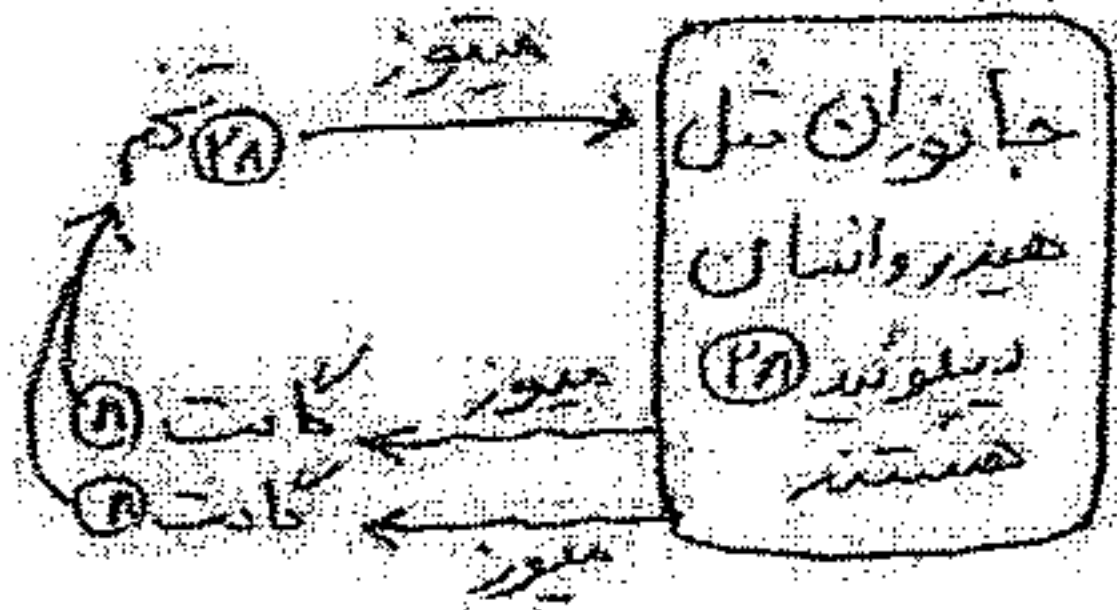 میتوز
تخم 2n
جانوران مثل
هیدر و انسان
دیپلوئید 2n
هستند
میوز
گامت n
گامت n
میوز